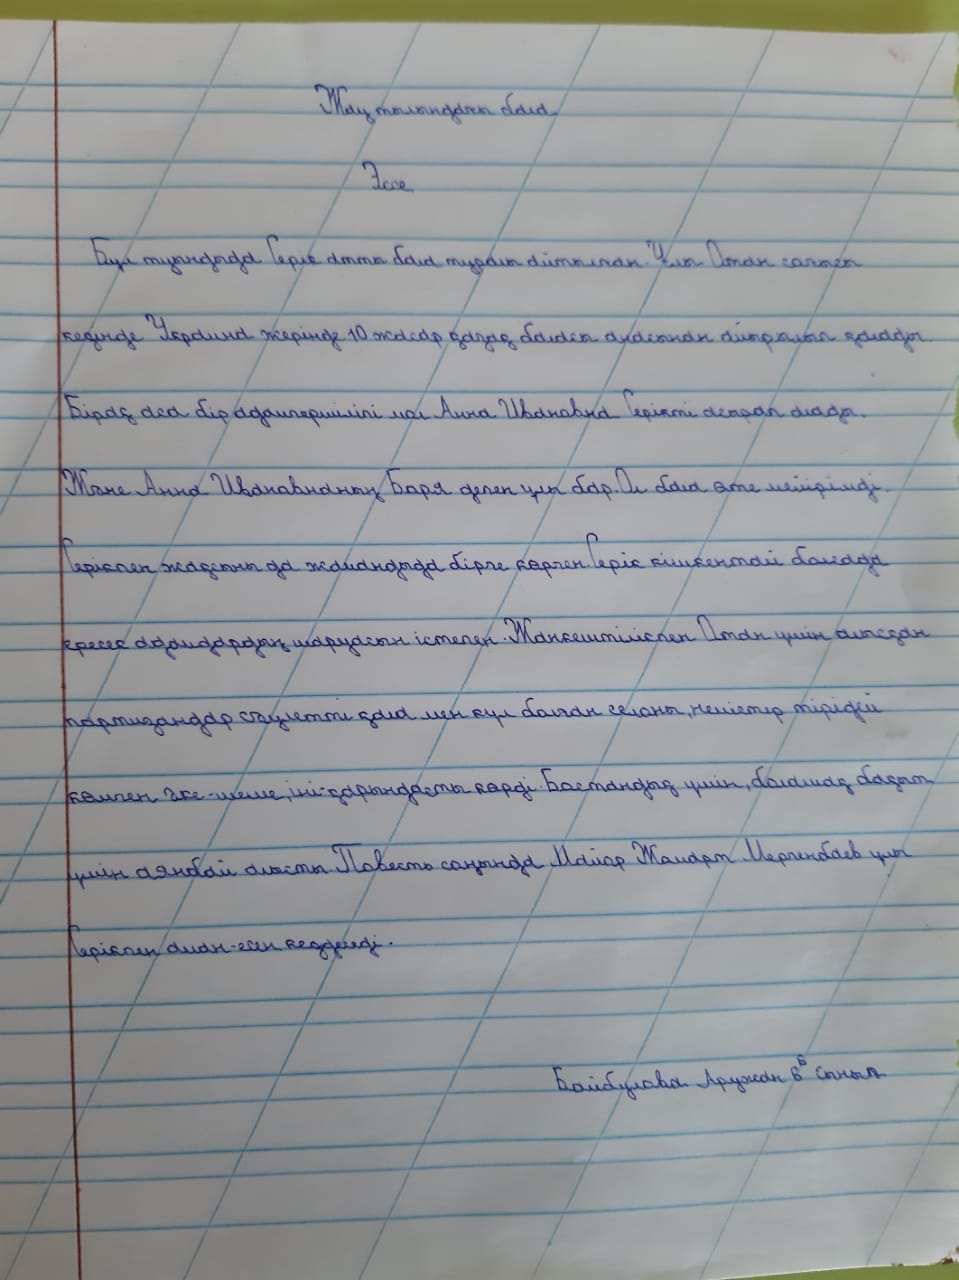 Жау тылындағы бала
Эссе
Бұл туындыда Серік атты бала туралы айтылған. Ұлы Отан соғысы
кезінде Украина жерінде 10 жасар қазақ баласы анасынан айырылып қалады.
Бірақ аса бір адамгершілігі мол Анна Ивановна Серікті асырап алады.
Және Анна Ивановнаның Боря деген ұлы бар. Ол бала өте мейірімді.
Серікпен жақсыны да жамандыда бірге көрген. Серік кішкентай болсада
ересек адамдардың шаруасын істеген. Жанкештілікпен Отан үшін алысқан
партизандар сәулетті қала мен күл болған селоны, немістер тірідей
көмген әке-шеше, іні-қарындасты көрді. Бостандық үшін, болашақ бақыт
үшін аянбай алысты. Повесть соңында Майор Жомарт Мергенбаев ұлы
Серікпен аман-есен кездеседі.
Байбулова Аружан 6 Б сынып